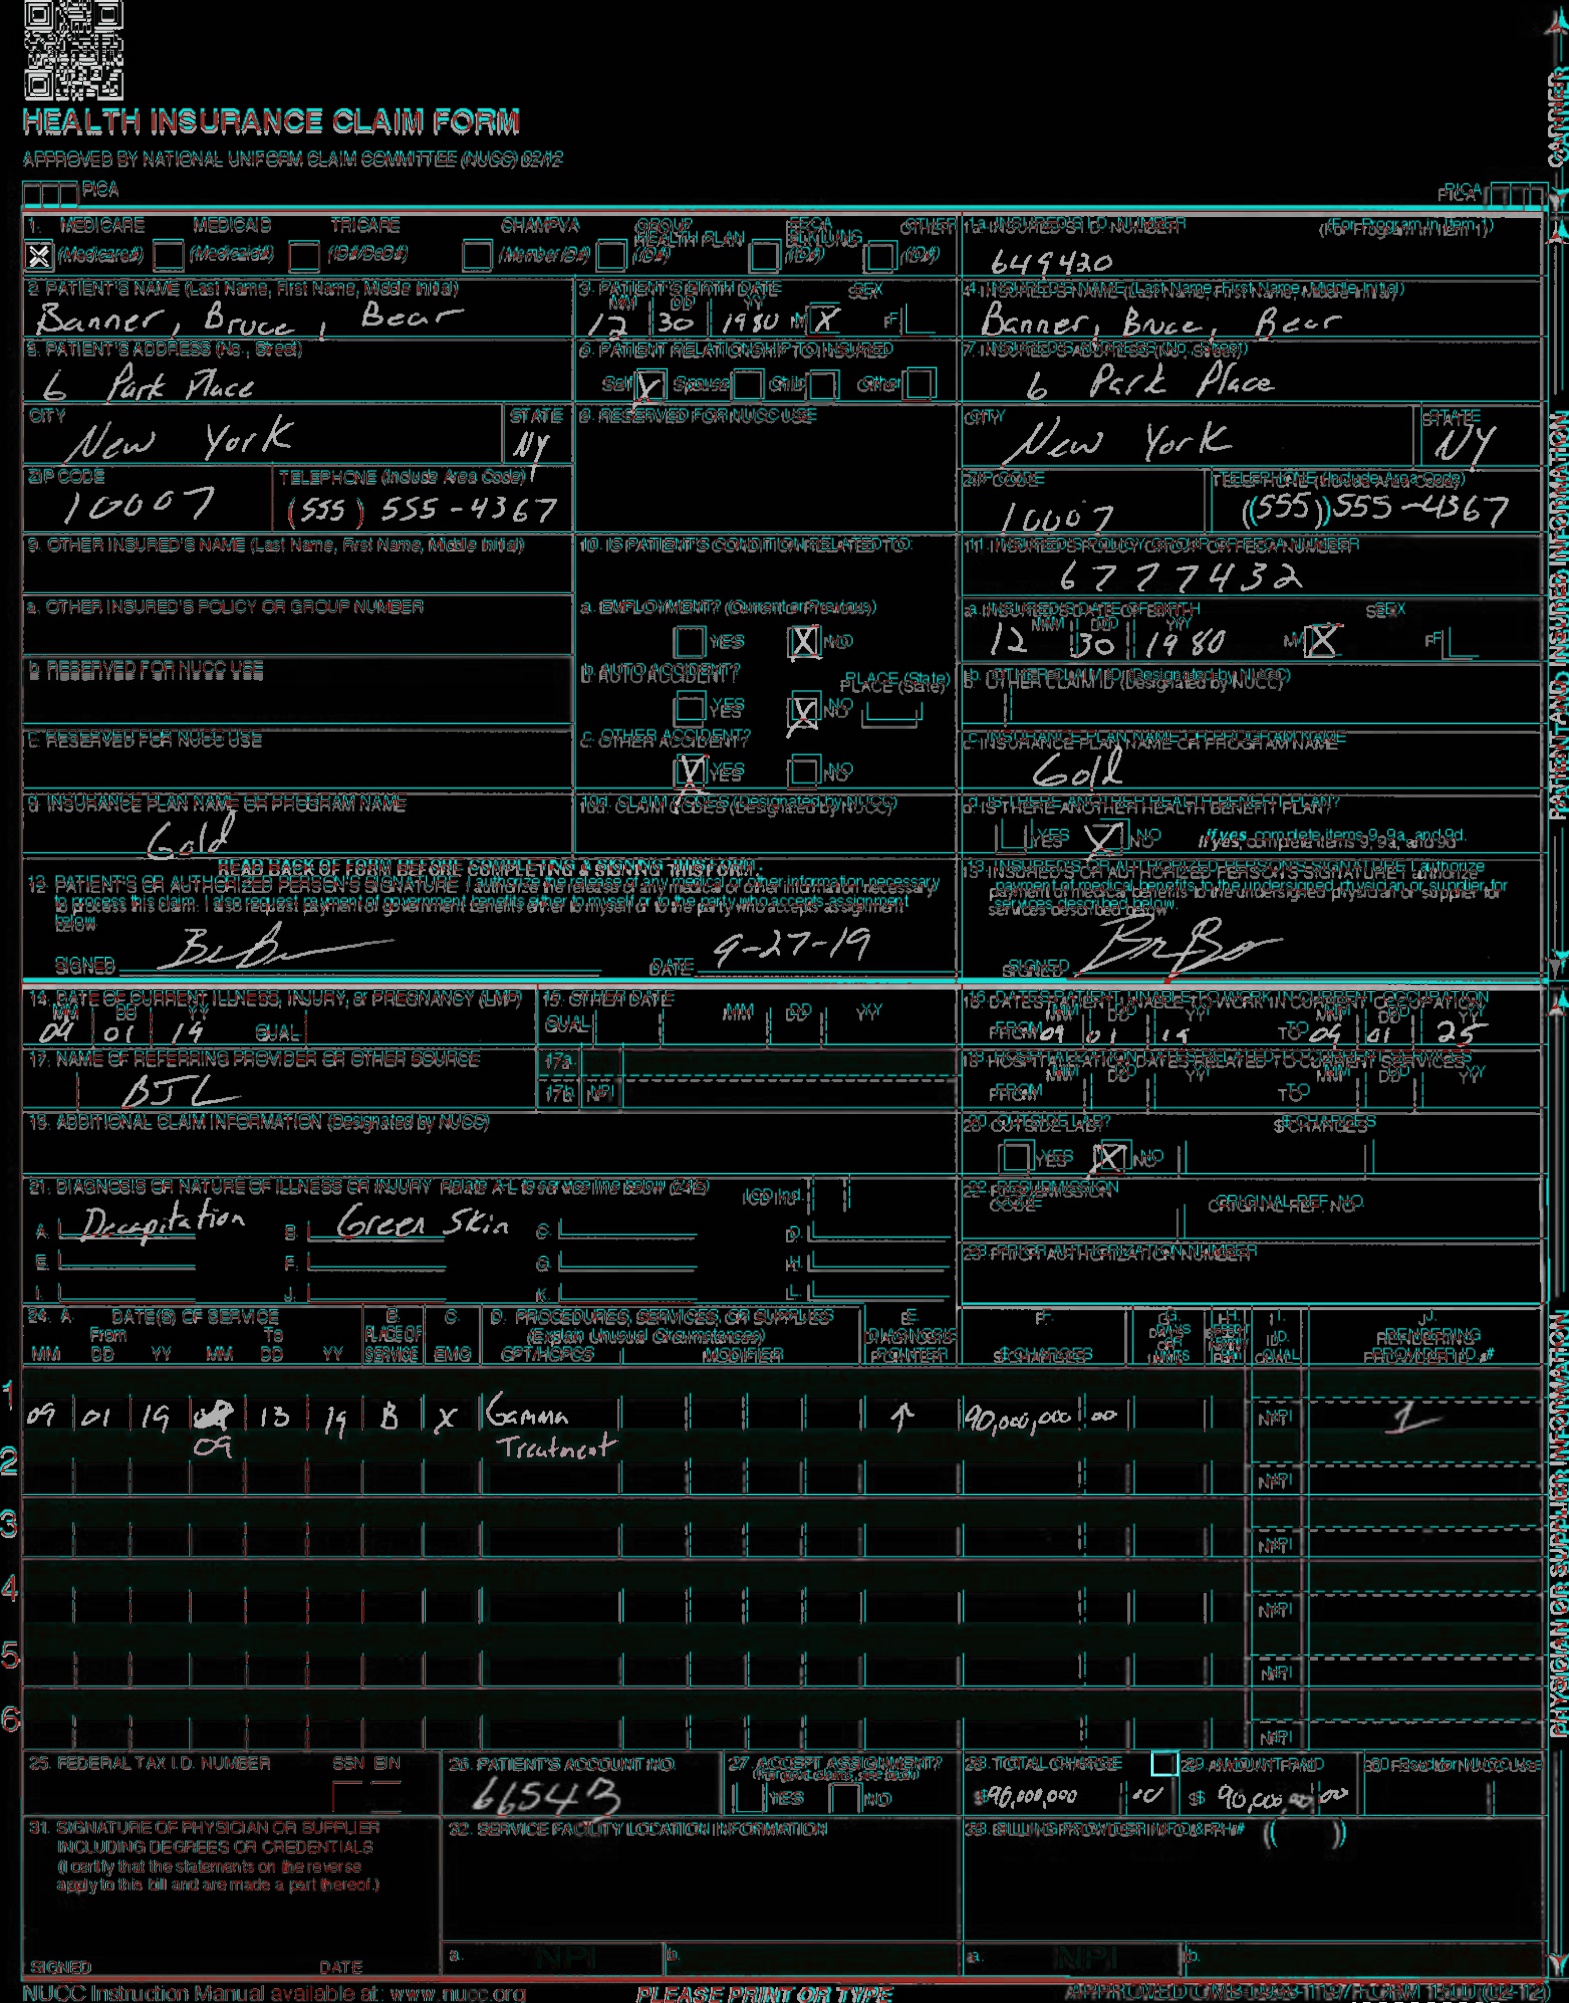 HEALTH INSURANCE CLAIM FORM
APPROVED BY NATIONAL UNIFORM CLAIM COMMITTEE (NUCC) 02/12
PICA
PICA
CARRIER
1. MEDICARE MEDICAID TRICARE CHAMPVA GROUP HEALTH PLAN FECA BLK LUNG OTHER
X (Medicare#) (Medicaid#) (ID#/DoD#) (Member ID#) (ID#) (ID#) (ID#)
1a. INSURED'S I.D. NUMBER (For Program in Item 1)
649420
2. PATIENT'S NAME (Last Name, First Name, Middle Initial)
Banner, Bruce, Bear
3. PATIENT'S BIRTH DATE SEX
MM DD YY
12 30 1980 M X F
4. INSURED'S NAME (Last Name, First Name, Middle Initial)
Banner, Bruce, Bear
5. PATIENT'S ADDRESS (No., Street)
6 Park Place
6. PATIENT RELATIONSHIP TO INSURED
Self X Spouse Child Other
7. INSURED'S ADDRESS (No., Street)
6 Park Place
CITY STATE
New York NY
8. RESERVED FOR NUCC USE
CITY STATE
New York NY
ZIP CODE TELEPHONE (Include Area Code)
10007 (555) 555-4367
ZIP CODE TELEPHONE (Include Area Code)
10007 (555) 555-4367
9. OTHER INSURED'S NAME (Last Name, First Name, Middle Initial)
10. IS PATIENT'S CONDITION RELATED TO:
11. INSURED'S POLICY GROUP OR FECA NUMBER
6777432
a. OTHER INSURED'S POLICY OR GROUP NUMBER
a. EMPLOYMENT? (Current or Previous)
YES X NO
a. INSURED'S DATE OF BIRTH SEX
MM DD YY
12 30 1980 M X F
b. RESERVED FOR NUCC USE
b. AUTO ACCIDENT? PLACE (State)
YES X NO
b. OTHER CLAIM ID (Designated by NUCC)
c. RESERVED FOR NUCC USE
c. OTHER ACCIDENT?
X YES NO
c. INSURANCE PLAN NAME OR PROGRAM NAME
Gold
d. INSURANCE PLAN NAME OR PROGRAM NAME
Gold
10d. CLAIM CODES (Designated by NUCC)
d. IS THERE ANOTHER HEALTH BENEFIT PLAN?
YES X NO If yes, complete items 9, 9a, and 9d.
PATIENT AND INSURED INFORMATION
READ BACK OF FORM BEFORE COMPLETING & SIGNING THIS FORM.
12. PATIENT'S OR AUTHORIZED PERSON'S SIGNATURE I authorize the release of any medical or other information necessary
to process this claim. I also request payment of government benefits either to myself or to the party who accepts assignment
below.
SIGNED DATE 9-27-19
13. INSURED'S OR AUTHORIZED PERSON'S SIGNATURE I authorize
payment of medical benefits to the undersigned physician or supplier for
services described below.
SIGNED
14. DATE OF CURRENT ILLNESS, INJURY, or PREGNANCY (LMP)
MM DD YY
09 01 19 QUAL.
15. OTHER DATE
QUAL. MM DD YY
16. DATES PATIENT UNABLE TO WORK IN CURRENT OCCUPATION
MM DD YY MM DD YY
FROM 09 01 19 TO 09 01 25
17. NAME OF REFERRING PROVIDER OR OTHER SOURCE
BJL
17a.
17b. NPI
18. HOSPITALIZATION DATES RELATED TO CURRENT SERVICES
MM DD YY MM DD YY
FROM TO
19. ADDITIONAL CLAIM INFORMATION (Designated by NUCC)
20. OUTSIDE LAB? $ CHARGES
YES X NO
21. DIAGNOSIS OR NATURE OF ILLNESS OR INJURY Relate A-L to service line below (24E) ICD Ind.
A. Decapitation B. Green Skin C. D.
E. F. G. H.
I. J. K. L.
22. RESUBMISSION
CODE ORIGINAL REF. NO.
23. PRIOR AUTHORIZATION NUMBER
24. A. DATE(S) OF SERVICE B. C. D. PROCEDURES, SERVICES, OR SUPPLIES E. F. G. H. I. J.
From To PLACE OF (Explain Unusual Circumstances) DIAGNOSIS DAYS OR UNITS EPSDT Family Plan ID. RENDERING
MM DD YY MM DD YY SERVICE EMG CPT/HCPCS MODIFIER POINTER $ CHARGES QUAL. PROVIDER ID. #
1
09 01 19 13 19 B X Gamma ↑ 90,000,000 00 NPI 1
09 Treatment
2
NPI
3
NPI
4
NPI
5
NPI
6
NPI
25. FEDERAL TAX I.D. NUMBER SSN EIN
26. PATIENT'S ACCOUNT NO.
6654B
27. ACCEPT ASSIGNMENT?
(For govt. claims, see back)
YES NO
28. TOTAL CHARGE
$ 90,000,000 00
29. AMOUNT PAID
$ 90,000,000 00
30. Rsvd for NUCC Use
31. SIGNATURE OF PHYSICIAN OR SUPPLIER
INCLUDING DEGREES OR CREDENTIALS
(I certify that the statements on the reverse
apply to this bill and are made a part thereof.)
SIGNED DATE
32. SERVICE FACILITY LOCATION INFORMATION
a. NPI b.
33. BILLING PROVIDER INFO & PH # ( )
a. NPI b.
PHYSICIAN OR SUPPLIER INFORMATION
NUCC Instruction Manual available at: www.nucc.org
PLEASE PRINT OR TYPE
APPROVED OMB-0938-1197 FORM 1500 (02-12)